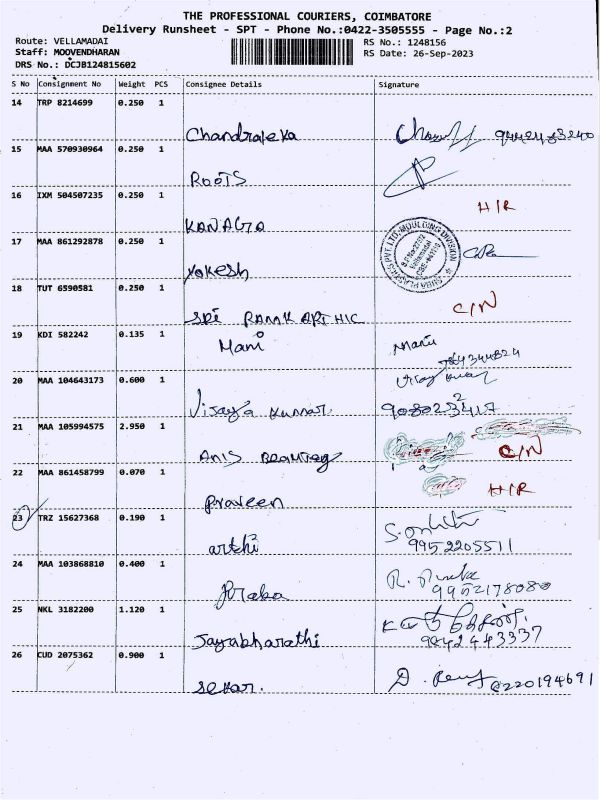 THE PROFESSIONAL COURIERS, COIMBATORE
Delivery Runsheet - SPT - Phone No.:0422-3505555 - Page No.:2
Route: VELLAMADAI RS No.: 1248156
Staff: MOOVENDHARAN RS Date: 26-Sep-2023
DRS No.: DCJB124815602
S No Consignment No Weight PCS Consignee Details Signature
14 TRP 8214699 0.250 1
Chandraleka
15 MAA 570930964 0.250 1
ROOTS
16 IXM 504507235 0.250 1
H/R
KANAGA
17 MAA 861292878 0.250 1
Yokesh
18 TUT 6590581 0.250 1
C/N
SRI RAMKARTHIC
19 KDI 582242 0.135 1
Mani Mani
20 MAA 104643173 0.600 1
Vijaya Kumar 9080232417
21 MAA 105994575 2.950 1
C/N
22 MAA 861458799 0.070 1
H/R
Praveen
23 TRZ 15627368 0.190 1
arthi 9952205511
24 MAA 103868810 0.400 1
Praba 9952178080
25 NKL 3182200 1.120 1
Jayabharathi 9842443337
26 CUD 2075362 0.900 1
Sekar. 8220194691